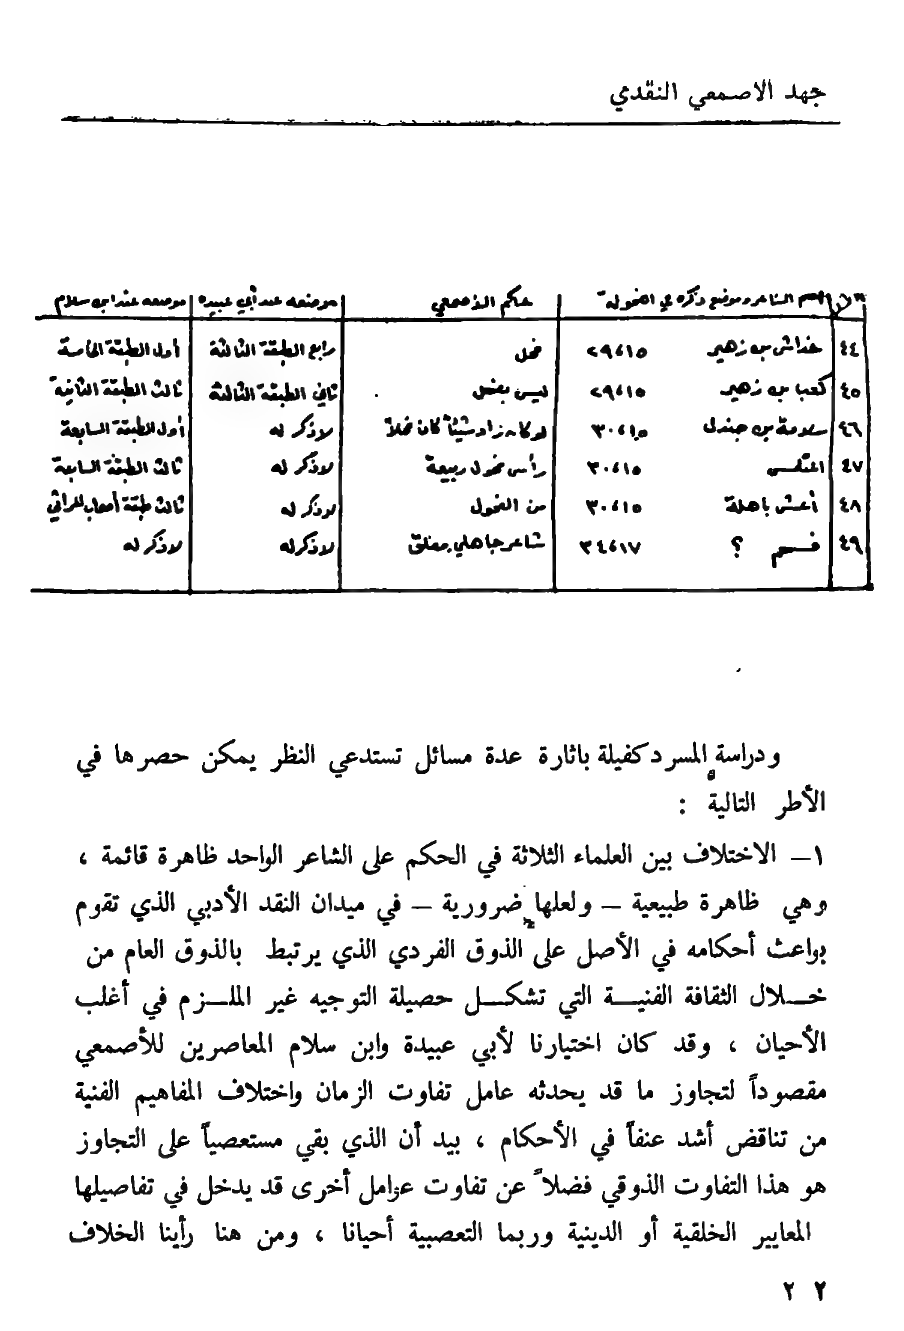 جهد الاصمعي النقدي
الرقم | اسم الشاعر وموضع ذكره في الفحولة | حكم الأصمعي | موضعه عند أبي عبيدة | موضعه عند ابن سلام
٤٤ | خداش بن زهير ٢٩،١٥ | فحل | رابع الطبقة الثالثة | أول الطبقة الخامسة
٤٥ | كعب بن زهير ٢٩،١٥ | ليس بفحل | ثاني الطبقة الثالثة | ثالث الطبقة الثانية
٤٦ | سلامة بن جندل ٣٠،١٥ | لو كان زاد شيئاً كان فحلاً | لا ذكر له | أول الطبقة السابعة
٤٧ | المتلمس ٣٠،١٥ | رأس فحول ربيعة | لا ذكر له | ثالث الطبقة السابعة
٤٨ | أعشى باهلة ٣٠،١٥ | من الفحول | لا ذكر له | ثالث طبقة أصحاب المراثي
٤٩ | ؟ ٣٤،١٧ | شاعر جاهلي مفلق | لا ذكر له | لا ذكر له
ودراسة المسرد كفيلة باثارة عدة مسائل تستدعي النظر يمكن حصرها في
الأطر التالية :
١– الاختلاف بين العلماء الثلاثة في الحكم على الشاعر الواحد ظاهرة قائمة ،
وهي ظاهرة طبيعية – ولعلها ضرورية – في ميدان النقد الأدبي الذي تقوم
بواعث أحكامه في الأصل على الذوق الفردي الذي يرتبط بالذوق العام من
خــلال الثقافة الفنيــة التي تشكــل حصيلة التوجيه غير الملــزم في أغلب
الأحيان ، وقد كان اختيارنا لأبي عبيدة وابن سلام المعاصرين للأصمعي
مقصوداً لتجاوز ما قد يحدثه عامل تفاوت الزمان واختلاف المفاهيم الفنية
من تناقض أشد عنفاً في الأحكام ، بيد أن الذي بقي مستعصياً على التجاوز
هو هذا التفاوت الذوقي فضلاً عن تفاوت عوامل أخرى قد يدخل في تفاصيلها
المعايير الخلقية أو الدينية وربما التعصبية أحيانا ، ومن هنا رأينا الخلاف
٢ ٢